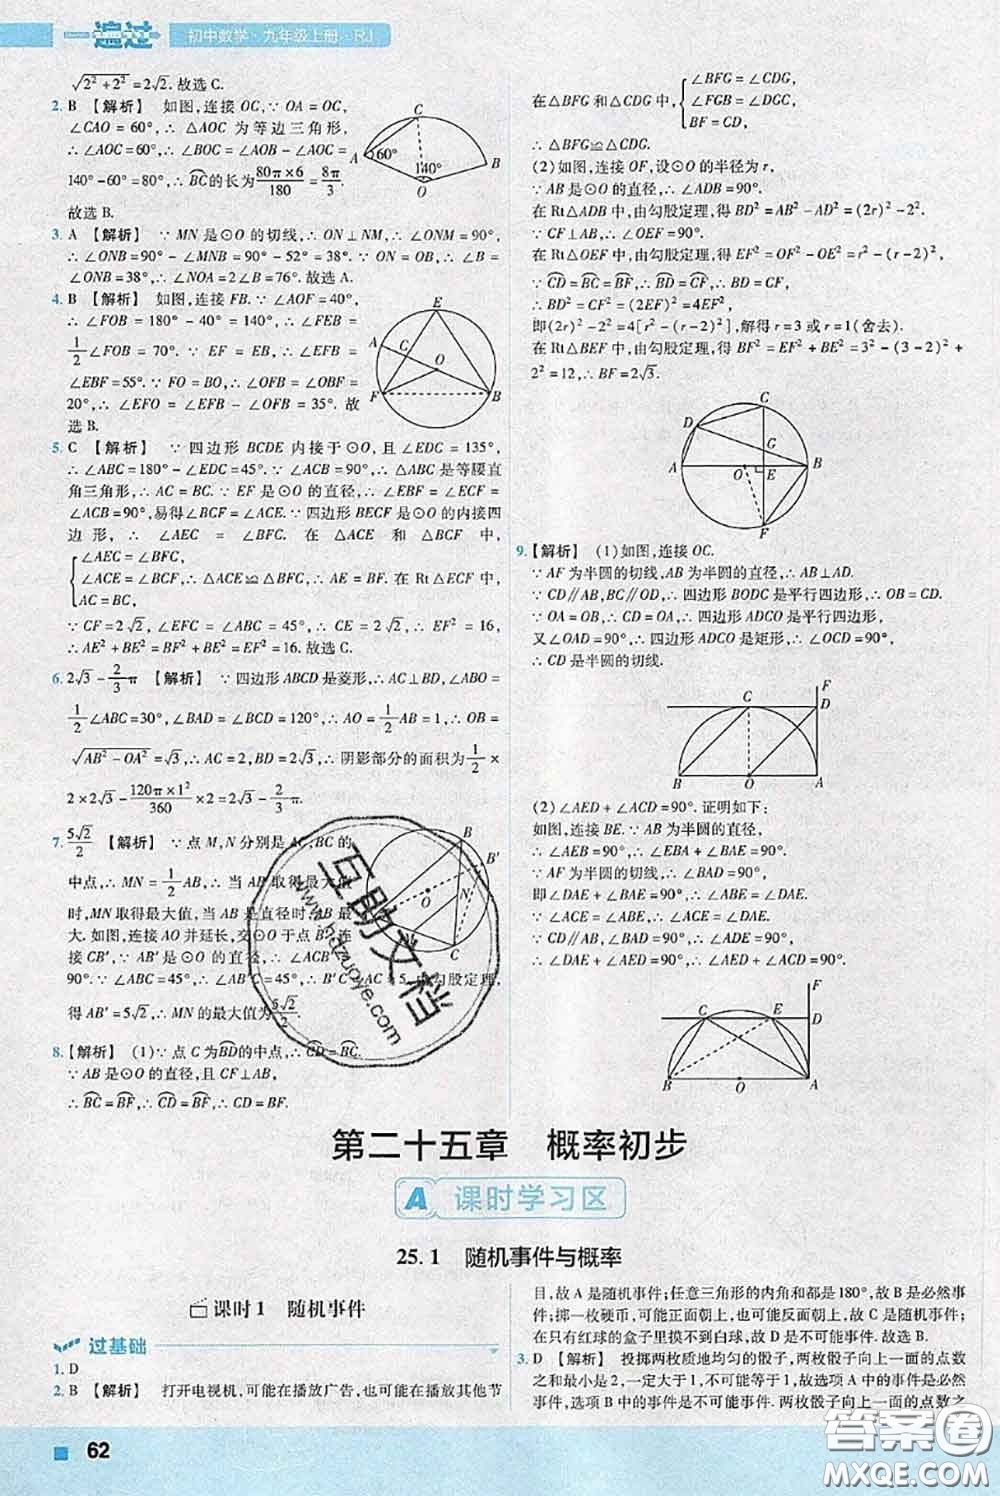 一遍过 初中数学·九年级上册·RJ
√(2²+2²)=2√2.故选 C.
2. B 【解析】 如图,连接 OC,∵ OA = OC,
∠CAO = 60°,∴ △AOC 为等边三角形,
∴ ∠AOC=60°,∴ ∠BOC = ∠AOB - ∠AOC =
140°-60°=80°,∴ BC⌒的长为 80π×6/180 = 8π/3.
故选 B.
3. A 【解析】 ∵ MN 是⊙O 的切线,∴ ON⊥NM,∴ ∠ONM = 90°,
∴ ∠ONB = 90° - ∠MNB = 90° - 52° = 38°. ∵ ON = OB,∴ ∠B =
∠ONB=38°,∴ ∠NOA=2∠B=76°.故选 A.
4. B 【解析】 如图,连接 FB. ∵ ∠AOF = 40°,
∴ ∠FOB = 180° - 40° = 140°,∴ ∠FEB =
1/2∠FOB = 70°. ∵ EF = EB,∴ ∠EFB =
∠EBF=55°. ∵ FO = BO,∴ ∠OFB = ∠OBF =
20°,∴ ∠EFO = ∠EFB - ∠OFB = 35°. 故
选 B.
5. C 【解析】 ∵ 四边形 BCDE 内接于⊙O,且∠EDC = 135°,
∴ ∠ABC=180°-∠EDC=45°. ∵ ∠ACB=90°,∴ △ABC 是等腰直
角三角形,∴ AC = BC. ∵ EF 是⊙O 的直径,∴ ∠EBF = ∠ECF =
∠ACB=90°,易得∠BCF=∠ACE. ∵ 四边形 BECF 是⊙O 的内接四
边形,∴ ∠AEC = ∠BFC. 在 △ACE 和 △BCF 中,
{∠AEC = ∠BFC,
∠ACE = ∠BCF,∴ △ACE≌△BCF,∴ AE = BF. 在 Rt△ECF 中,
AC = BC,
∵ CF=2√2,∠EFC = ∠ABC = 45°,∴ CE = 2√2,∴ EF² = 16,
∴ AE² + BE² = BF² + BE² = EF² = 16.故选 C.
6. 2√3 - 2/3π 【解析】 ∵ 四边形 ABCD 是菱形,∴ AC⊥BD,∠ABO=
1/2∠ABC=30°,∠BAD=∠BCD=120°,∴ AO=1/2AB=1,∴ OB=
√(AB²-OA²)=√3,∴ AC=2,BD=2√3,∴ 阴影部分的面积为1/2×
2×2√3-120π×1²/360×2=2√3-2/3π.
7. 5√2/2 【解析】 ∵ 点 M,N 分别是 AC,BC 的
中点,∴ MN=1/2AB,∴ 当 AB 取得最大值
时,MN 取得最大值,当 AB 是直径时,AB 最
大. 如图,连接 AO 并延长,交⊙O 于点 B',连
接 CB',∵ AB'是⊙O 的直径,∴ ∠ACB' =
90°. ∵ ∠ABC=45°,∴ ∠AB'C=45°,∴ B'C=AC=5,由勾股定理,
得 AB'=5√2,∴ MN 的最大值为5√2/2.
8.【解析】 (1)∵ 点 C 为BD⌒的中点,∴ CD⌒=BC⌒.
∵ AB 是⊙O 的直径,且 CF⊥AB,
∴ BC⌒ = BF⌒,∴ CD⌒ = BF⌒,∴ CD = BF.
在△BFG 和△CDG 中,{∠BFG = ∠CDG,
∠FGB = ∠DGC,
BF = CD,
∴ △BFG≌△CDG.
(2)如图,连接 OF,设⊙O 的半径为 r,
∵ AB 是⊙O 的直径,∴ ∠ADB=90°.
在 Rt△ADB 中,由勾股定理,得 BD²=AB²-AD²=(2r)²-2².
∵ CF⊥AB,∴ ∠OEF=90°.
在 Rt△OEF 中,由勾股定理,得 EF²=OF²-OE²=r²-(r-2)².
∵ CD⌒=BC⌒=BF⌒,∴ BD⌒=CF⌒,∴ BD=CF,
∴ BD² = CF² = (2EF)² = 4EF²,
即(2r)²-2²=4[r²-(r-2)²],解得 r=3 或 r=1(舍去).
在 Rt△BEF 中,由勾股定理,得 BF²=EF²+BE²=3²-(3-2)²+
2²=12,∴ BF=2√3.
9.【解析】 (1)如图,连接 OC.
∵ AF 为半圆的切线,AB 为半圆的直径,∴ AB⊥AD.
∵ CD∥AB,BC∥OD,∴ 四边形 BODC 是平行四边形,∴ OB=CD.
∵ OA = OB,∴ CD = OA,∴ 四边形 ADCO 是平行四边形,
又∠OAD=90°,∴ 四边形 ADCO 是矩形,∴ ∠OCD=90°,
∴ CD 是半圆的切线.
(2) ∠AED + ∠ACD=90°. 证明如下:
如图,连接 BE. ∵ AB 为半圆的直径,
∴ ∠AEB = 90°,∴ ∠EBA + ∠BAE = 90°.
∵ AF 为半圆的切线,∴ ∠BAD=90°,
即∠DAE + ∠BAE = 90°,∴ ∠ABE = ∠DAE.
∵ ∠ACE = ∠ABE,∴ ∠ACE = ∠DAE.
∵ ∠BAD=90°,CD∥AB,∴ ∠ADE = 90°,
∴ ∠DAE + ∠AED = 90°,
∴ ∠AED + ∠ACD = 90°.
第二十五章 概率初步
A 课时学习区
25.1 随机事件与概率
课时1 随机事件
过基础
1. D
2. B 【解析】 打开电视机,可能在播放广告,也可能在播放其他节
目,故 A 是随机事件;任意三角形的内角和都是180°,故 B 是必然事
件;掷一枚硬币,可能正面朝上,也可能反面朝上,故 C 是随机事件;
在只有红球的盒子里摸不到白球,故 D 是不可能事件.故选 B.
3. D 【解析】 投掷两枚质地均匀的骰子,两枚骰子向上一面的点数
之和最小是2,一定大于1,不可能等于1,故选项 A 中的事件是必然事
件,选项 B 中的事件是不可能事件. 两枚骰子向上一面的点数之
62
互助文档
www.hzuoye.com
答案圈
MXQE.COM